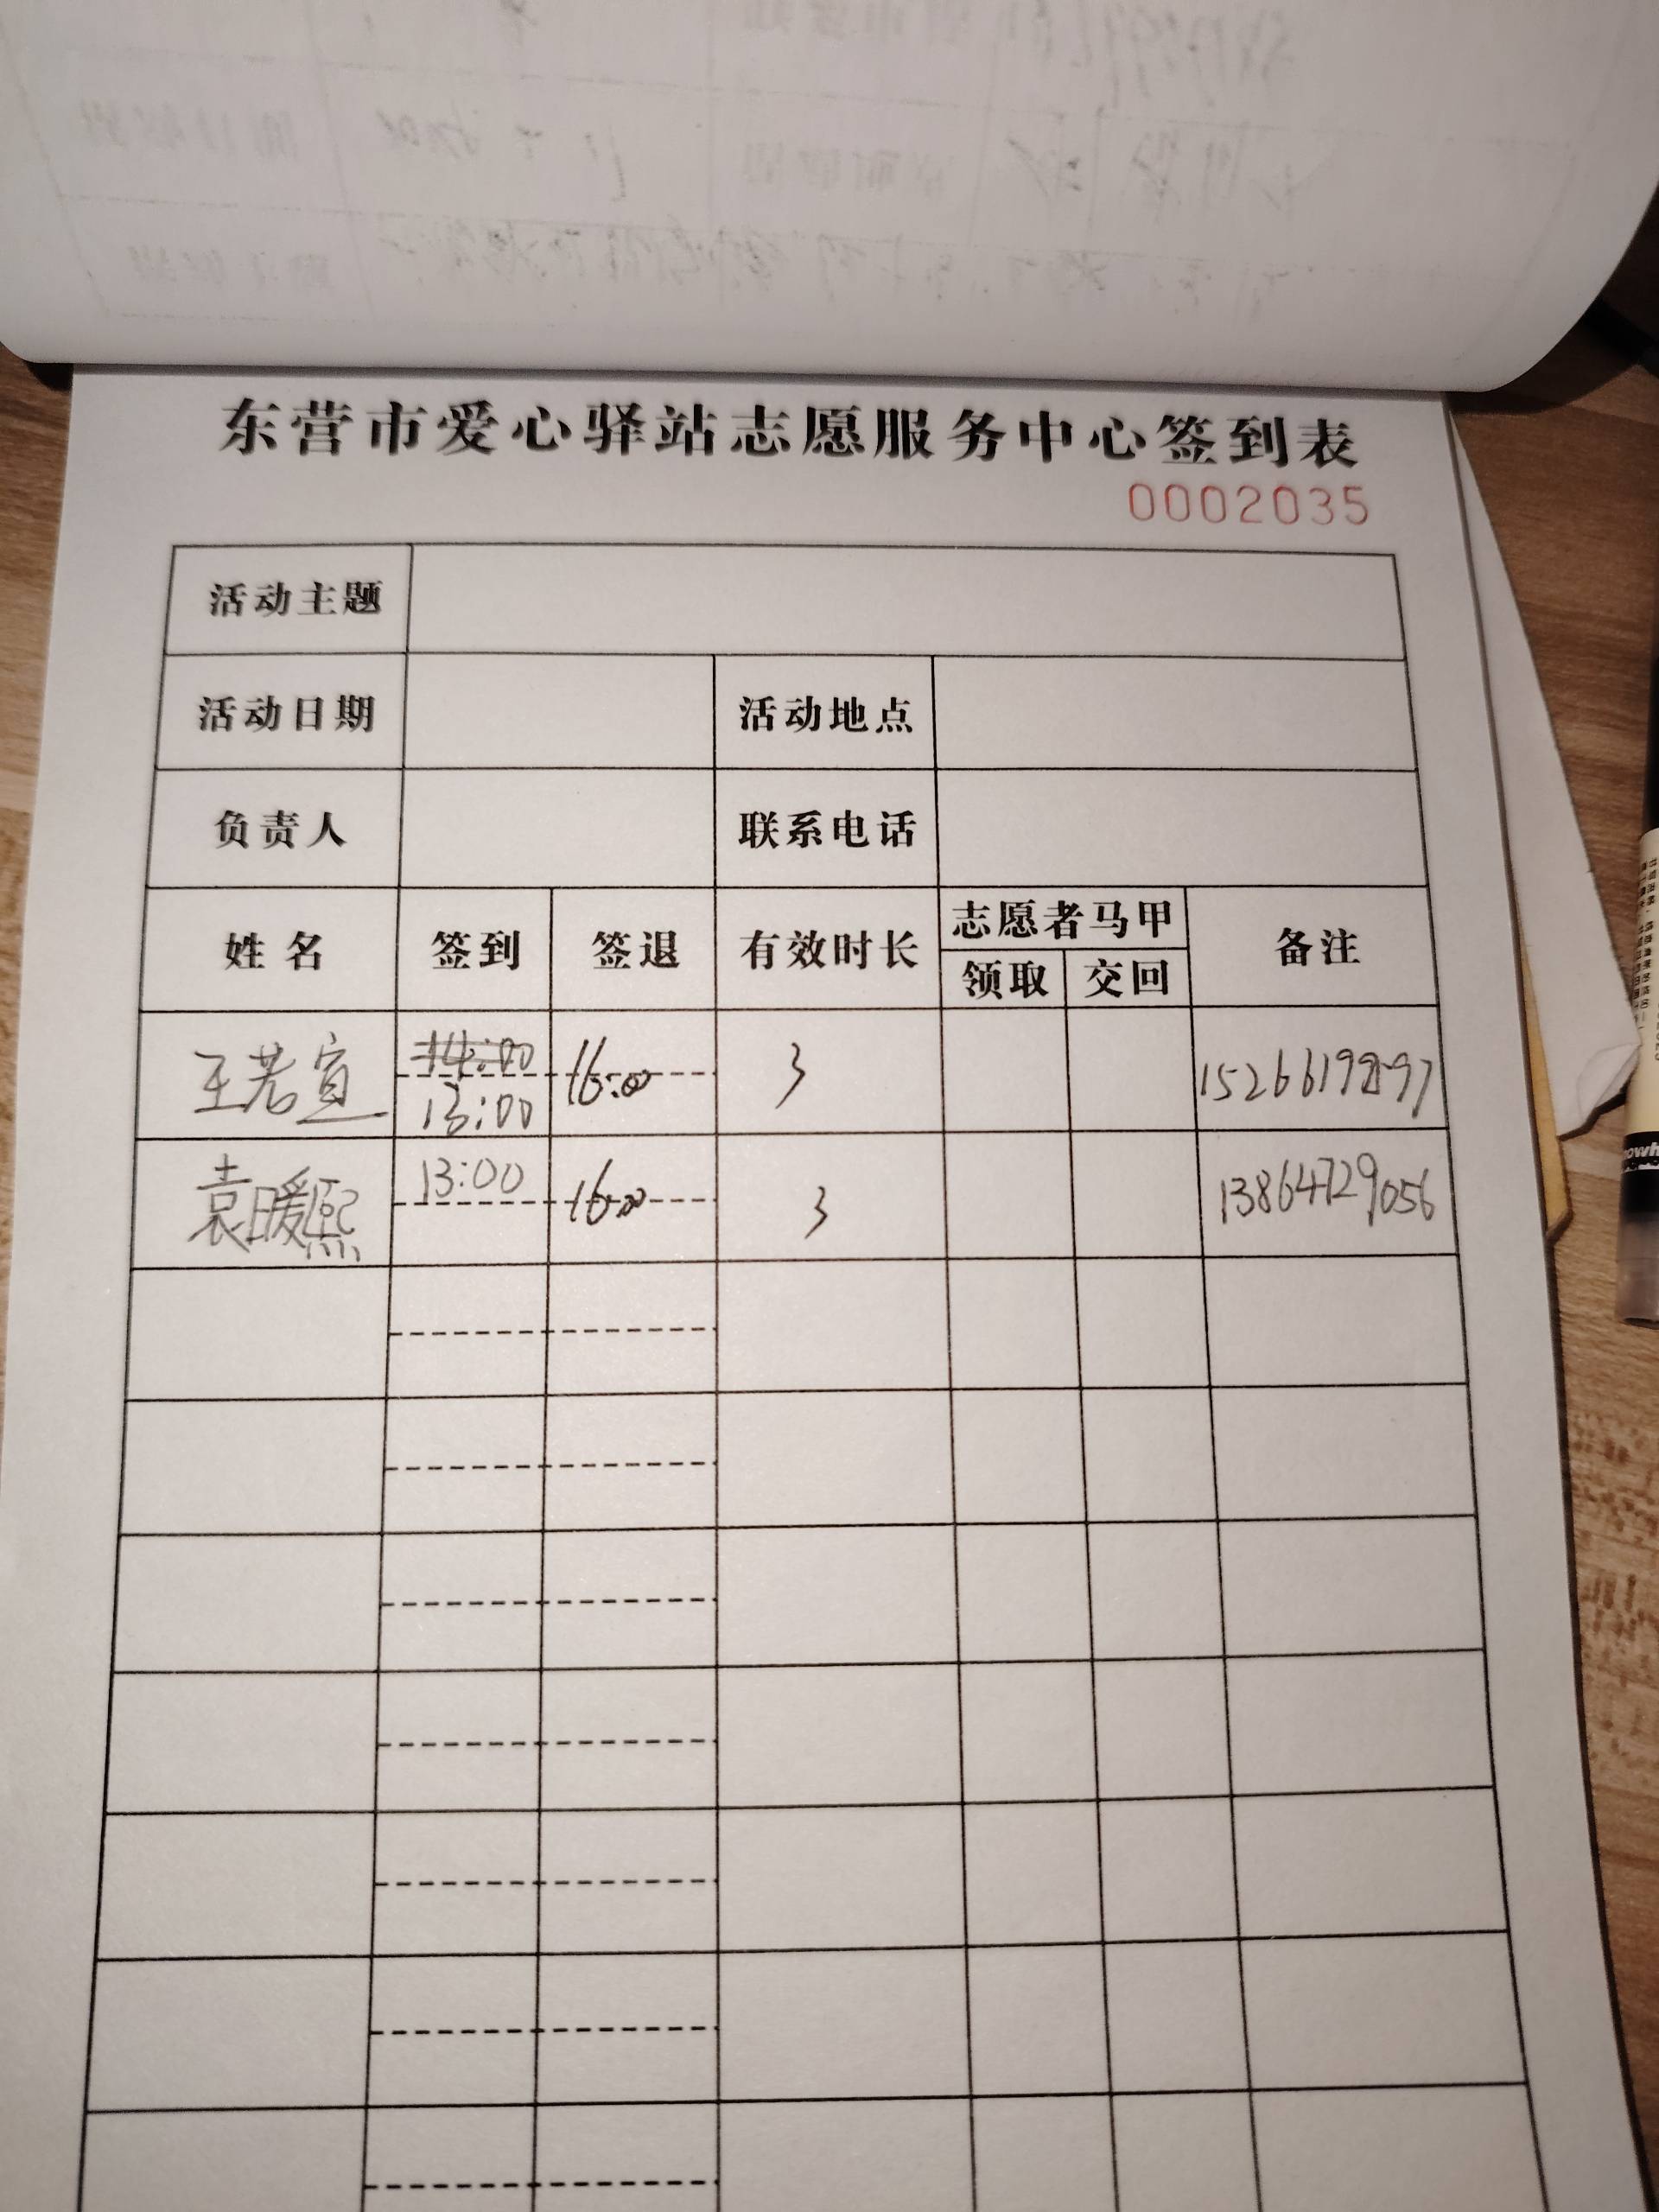 东营市爱心驿站志愿服务中心签到表
0002035
活动主题
活动日期 活动地点
负责人 联系电话
姓名 签到 签退 有效时长 志愿者马甲 备注
领取 交回
王若宣 14:00 16:00 3
13:00
袁暖熙 13:00 16:00 3 13864729056